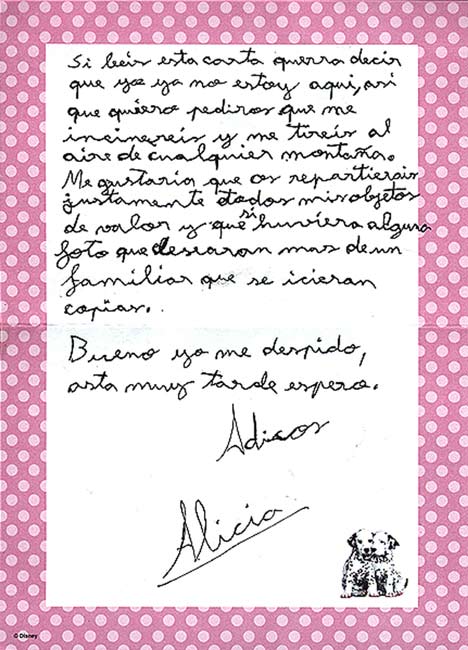 Si leéis esta carta querra decir
que yo ya no estoy aqui, así
que quiero pediros que me
incinéreis y me tireis al
aire de cualquier montaña.
Me gustaria que os repartierais
justamente todos mis objetos
de valor y que si huviera alguna
foto que desearan mas de un
familiar que se icieran
copias.
Bueno yo me despido,
asta muy tarde espero.
Adioos
Alicia
© Disney